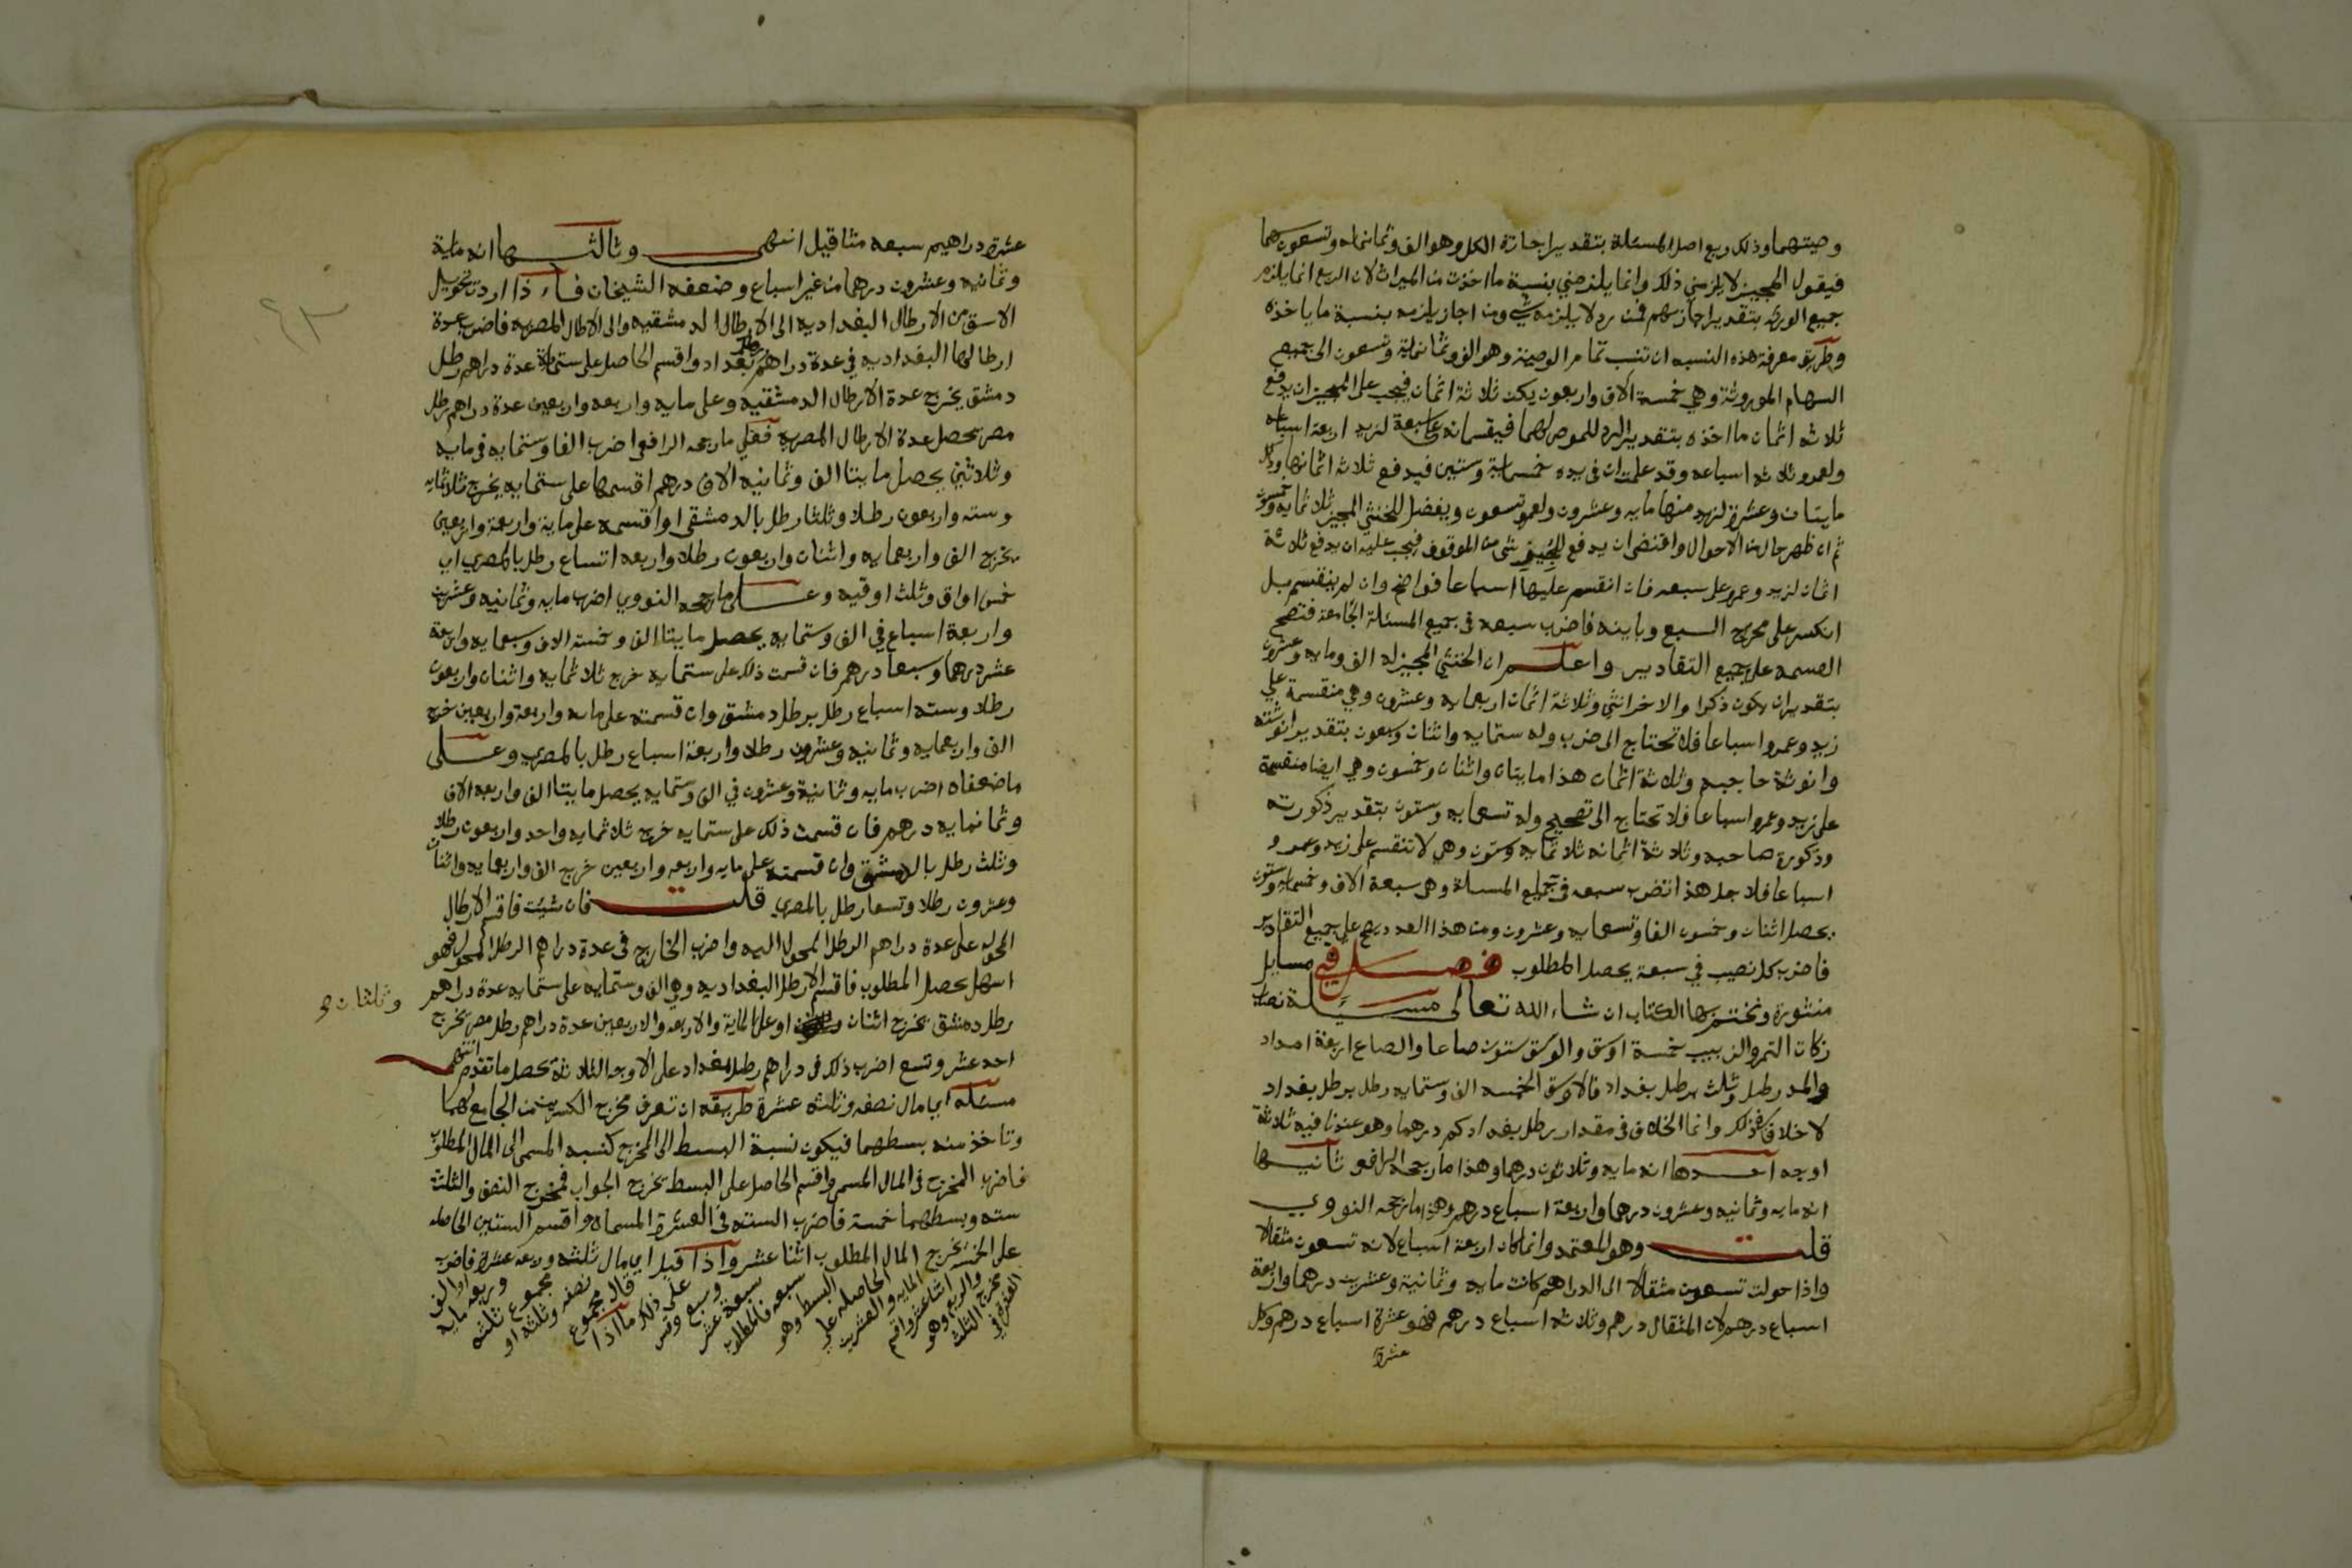 وصيتهما وذلك ربع اصل المسئلة بتقدير اجازة الكل وهو الف وثمانمايه وتسعون سهما
فيقول المجيز لا يلزمني ذلك وانما يلزمني بنسبة ما اخذت من الميراث لان الربع انما يلزم
جميع الورثه بتقدير اجازتهم فمن رد لا يلزمه شي ومن اجاز يلزمه بنسبة ما ياخذه
وطريق معرفة هذه النسبه ان تنسب تمام الوصية وهو الف وثمانماية وتسعون الى جميع
السهام الموروثة وهي خمسة الاف واربعون يكن ثلاثة اثمان فيجب على المجيز ان يدفع
ثلاثه اثمان ما اخذه بتقدير الرد للموصى لهما فيقسمانه على سبعة لزيد اربعة اسباعه
ولعمرو ثلاثه اسباعه وقد علمت ان في يده خمسماية وستين فيدفع ثلاثة اثمانها وذلك
مايتان وعشرة لزيد منها مايه وعشرون ولعمرو تسعون ويفضل للخنثي المجيز ثلاثمايه وخمسون
ثم ان ظهر حال من الاحوال واقتضى ان يدفع للمجيز شي من الموقوف فيجب عليه ان يدفع ثلاثة
اثمان لزيد وعمرو على سبعه فان انقسم عليها اسباعا فواضح وان لم ينقسم بل
انكسر على مخرج السبع وباينه فاضرب سبعه في جميع المسئلة الجامعة فتصح
القسمه على جميع التقادير واعلم ان الخنثي المجيز له الف ومايه وعشرون
بتقدير ان يكون ذكرا والاخر انثي وثلاثة اثمان اربعمايه وعشرون وهي منقسمة علي
زيد وعمرو اسباعا فلا تحتاج الى ضرب وله ستمايه واثنان وسبعون بتقدير انوثته
وانوثة صاحبه وثلاثة اثمان هذا مايتان واثنان وخمسون وهي ايضا منقسمة
على زيد وعمرو اسباعا فلا تحتاج الى تصحيح وله تسعمايه وستون بتقدير ذكورته
وذكورة صاحبه وثلاثة اثمانه ثلاثمايه وستون وهي لا تنقسم على زيد وعمرو
اسباعا فلاجل هذا تضرب سبعه في جميع المسئلة وهي سبعة الاف وخمسمايه وستون
يحصل اثنان وخمسون الفا وتسعمايه وعشرون ومن هذا العدد تصح على جميع التقادير
فاضرب كل نصيب في سبعة يحصل المطلوب فصل في مسايل
منثورة ونختم بها الكتاب ان شاء الله تعالى مسئلة نصاب
زكات التمر والزبيب خمسة اوسق والوسق ستون صاعا والصاع اربعة امداد
والمد رطل وثلث برطل بغداد فالاوسق الخمسه الف وستمايه رطل برطل بغداد
لا خلاف في ذلك وانما الخلاف في مقدار رطل بغداد كم درهما وهو عندنا فيه ثلاثة
اوجه احدها انه مايه وثلاثون درهما وهذا ما رجحه الرافعي ثانيها
انه مايه وثمانيه وعشرون درهما واربعة اسباع درهم وهذا ما رجحه النووي
قلت وهو المعتمد وانما كان اربعة اسباع لانه تسعون مثقالا
واذا حولت تسعون مثقالا الى الدراهم كانت مايه وثمانية وعشرين درهما واربعة
اسباع درهم لان المثقال درهم وثلاثه اسباع درهم فهو عشرة اسباع درهم وكل
عشرة
عشرة دراهيم سبعه مثاقيل انتهى وثالثها انه ماية
وثمانيه وعشرون درهما من غير اسباع وضعفه الشيخان فاذا اردت تحويل
الاوسق من الارطال البغداديه الى الارطال الدمشقيه والى الارطال المصريه فاضرب عدة
ارطالها البغداديه في عدة دراهم رطل بغداد واقسم الحاصل على ستماية عدة دراهم رطل
دمشق يخرج عدة الارطال الدمشقيه وعلى مايه واربعه واربعين عدة دراهم رطل
مصر يحصل عدة الارطال المصريه فعلي ما رجحه الرافعي اضرب الفا وستمايه في مايه
وثلاثين يحصل مايتا الف وثمانيه الاف درهم اقسمها على ستمايه يخرج ثلاثمايه
وسته واربعون رطلا وثلثا رطل بالدمشقي او اقسمه على ماية واربعة واربعين
يخرج الف واربعمايه واثنان واربعون رطلا واربعه اتساع رطل بالمصري اي
خمس اواق وثلث اوقيه وعلى ما رجحه النووي اضرب مايه وثمانيه وعشرين
واربعة اسباع في الف وستمايه يحصل مايتا الف وخمسة الاف وسبعمايه واربعة
عشر درهما وسبعا درهم فان قسمت ذلك على ستمايه خرج ثلاثمايه واثنان واربعون
رطلا وسته اسباع رطل برطل دمشق وان قسمته على مايه واربعة واربعين خرج
الف واربعمايه وثمانيه وعشرون رطلا واربعة اسباع رطل بالمصري وعلى
ما ضعفاه اضرب مايه وثمانية وعشرون في الف وستمايه يحصل مايتا الف واربعه الاف
وثمانمايه درهم فان قسمت ذلك على ستمايه خرج ثلاثمايه واحد واربعون رطلا
وثلث رطل بالدمشقي وان قسمته على مايه واربعه واربعين خرج الف واربعمايه واثنان
وعشرون رطلا وتسعا رطل بالمصري قلت فان شيت فاقسم الارطال
المحوله على عدة دراهم الرطل المحول اليه واضرب الخارج في عدة دراهم الرطل المحول فهو
اسهل يحصل المطلوب فاقسم الارطال البغداديه وهي الف وستمايه على ستمايه عدة دراهم
رطل دمشق يخرج اثنان او على الماية والاربعه والاربعين عدة دراهم رطل مصر يخرج
وثلثان
احد عشر وتسع اضرب ذلك في دراهم رطل بغداد على الاوجه الثلاثة يحصل ما تقدم انتهى
مسئله اي مال نصفه وثلثه عشرة طريقه ان تعرف مخرج الكسرين من الجامع لهما
وتاخذ منه بسطهما فيكون نسبة البسط الى المخرج كنسبة المسمى الى المال المطلوب
فاضرب المخرج في المال المسمى واقسم الحاصل على البسط يخرج الجواب فمخرج النصف والثلث
سته وبسطهما خمسة فاضرب السته في العشرة المسماه واقسم الستين الحاصله
على الخمسه يخرج المال المطلوب اثنا عشر واذا قيل اي مال ثلثه وربعه عشرة فاضرب
العشرة في
مخرج الثلث
والربع وهو
اثنا عشر واقسم
المايه والعشرين
الحاصله على
البسط وهو
سبعه فالمطلوب
سبعة عشر
وسبع وقس
على ذلك ما اذا
قال مجموع
نصفه وثلثه او
مجموع ثلثه
وربعه مايه
او الف